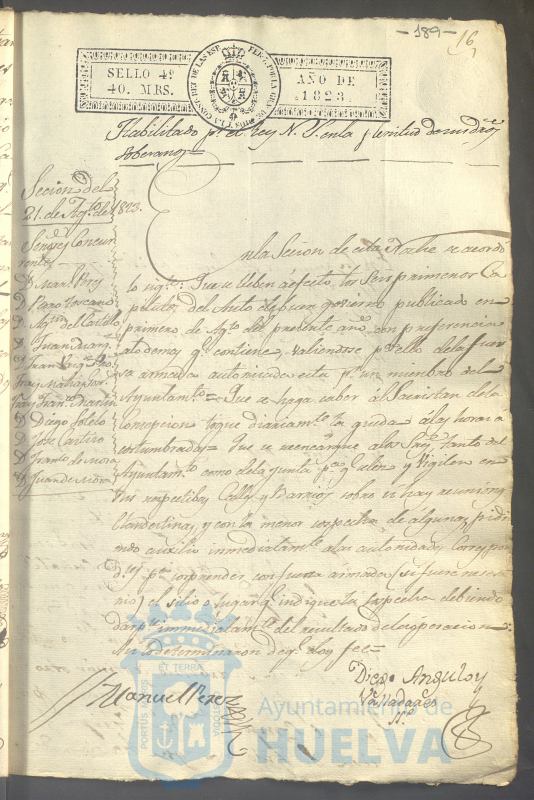 -189-
16
SELLO 4º
40. MRS.
AÑO DE
1823.
Habilitado pr. el Rey N. S. en la plenitud de sus dros
Soberanos=
Secion del
21. de Agto. de 1823.
Senores Concur
rentes
D. Man.l Prz
D. Pedro Toscano
D. Agn. del Castillo
D. Juan
D. Fran.
Fray
Fray Fran.co Martin
D. Diego Sotelo
D. Jose Cartiro
D. Fran.co de Mora
D. Juan de Mora
En la Secion de esta Noche se acordó
lo sigte.: Que se lleben á efecto los seis primeros Ca
pitulos del Auto de buen govierno publicado en
primero de Agto. del presente año, con preferencia
alo demas qe. contiene, valiendose pa. ello dela fuer
za armada autorizada esta pr. un miembro del
Ayuntamto.= Que se haga saber al Sacristan dela
Concepcion toque diariamte. la queda á las horas a
costumbradas= Que se reencargue a los Sres. tanto del
Ayuntamto. como dela junta pa. qe. celen y Vigilen en
sus respectibas Calles y Barrios sobre si hay reuniones
Clandestinas, y con la menor sospecha de algunas, pidi
endo auxilio inmediatamte. alas autoridades Correspon
d.es pa. sorprender con fuerza armada (si fuere nece
rio) el sitio ó lugar qe. indique la sospecha debiendo
dar pte. inmediatamte. del resultado dela operacion:
Asi lo determinaron de qe. doy fee=
Manuel Perez
Diego Anguloy
Valladares
Sno.
PORTUS MARIS
ET TERRAE
CUSTODIA
Ayuntamiento de
HUELVA